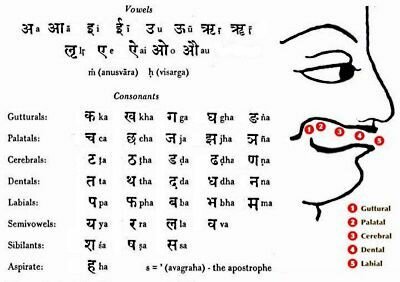 Vowels
अ a आ ā इ i ई ī उ u ऊ ū ऋ ṛ ॠ ṝ
ऌ ḷ ए e ऐ ai ओ o औ au
ṁ (anusvāra) ḥ (visarga)
Consonants
Gutturals: क ka ख kha ग ga घ gha ङ ṅa
Palatals: च ca छ cha ज ja झ jha ञ ña
Cerebrals: ट ṭa ठ ṭha ड ḍa ढ ḍha ण ṇa
Dentals: त ta थ tha द da ध dha न na
Labials: प pa फ pha ब ba भ bha म ma
Semivowels: य ya र ra ल la व va
Sibilants: श śa ष ṣa स sa
Aspirate: ह ha s = ' (avagraha) - the apostrophe
1 2 3 4 5
1 Guttural
2 Palatal
3 Cerebral
4 Dental
5 Labial